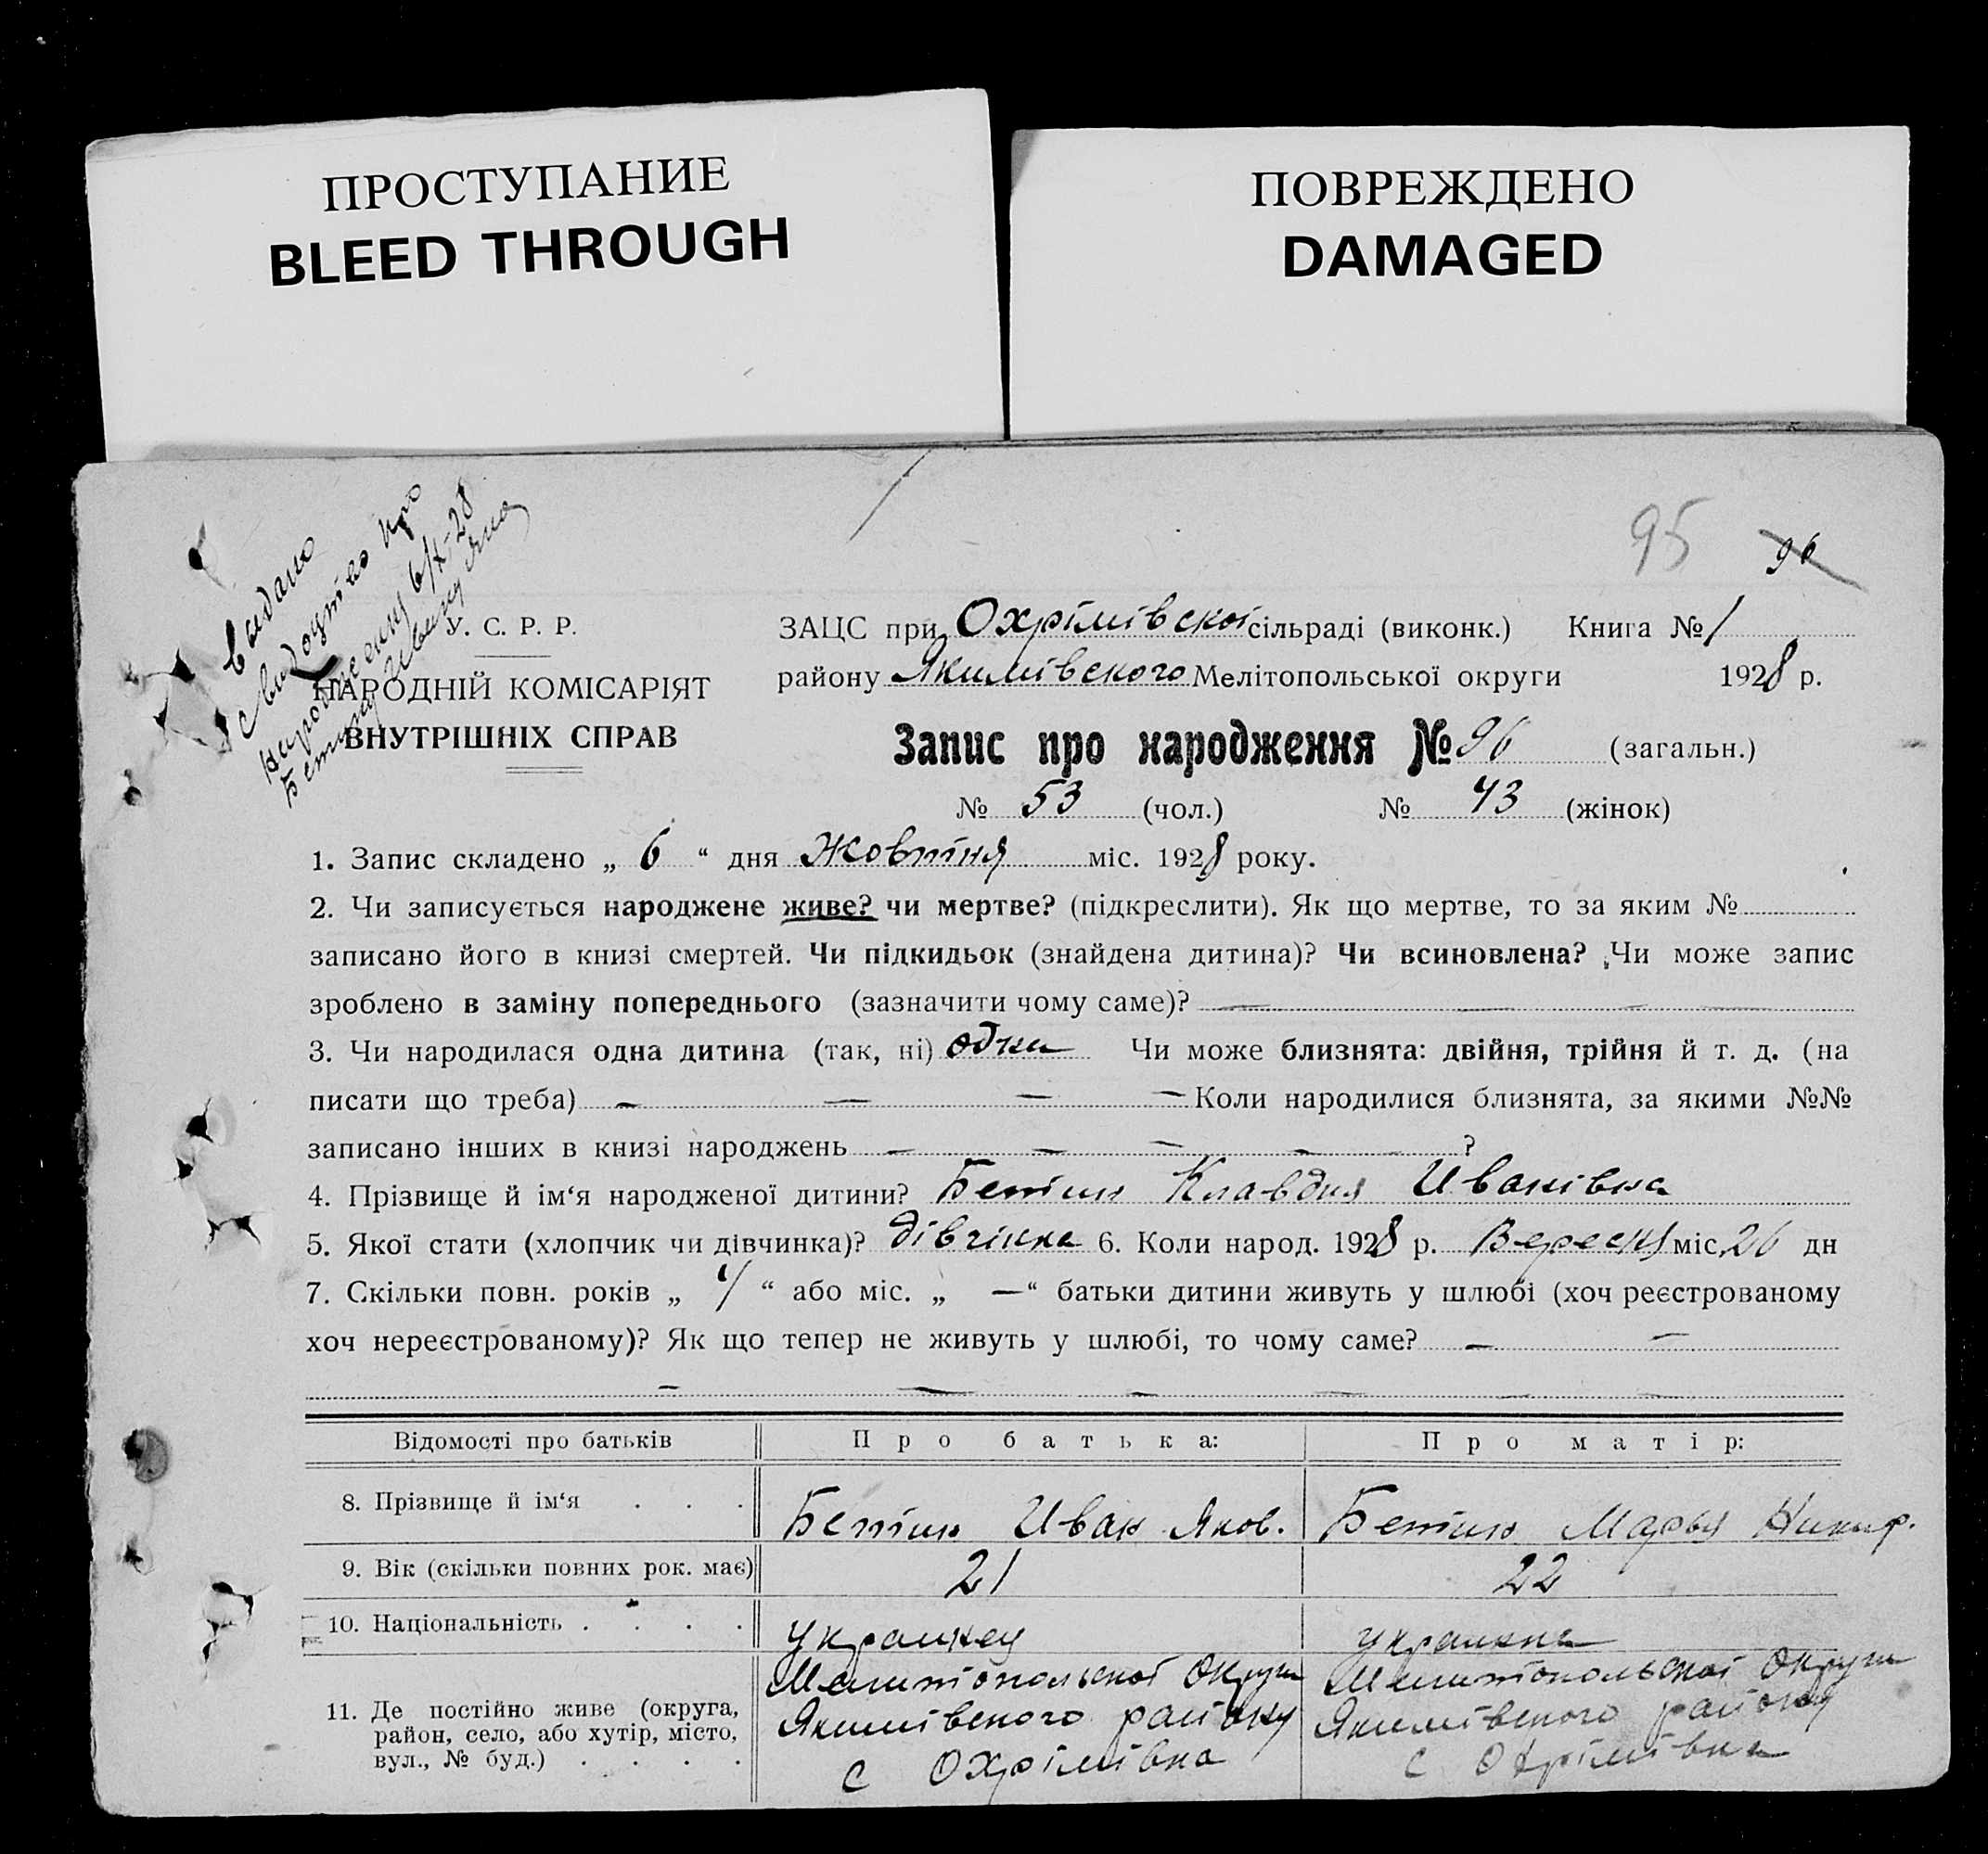 ПРОСТУПАНИЕ
BLEED THROUGH
ПОВРЕЖДЕНО
DAMAGED
95
96
видано
свидоцтво про
народження 6/X-28
Бетину Ивану
У. С. Р. Р.
НАРОДНІЙ КОМІСАРІЯТ
ВНУТРІШНІХ СПРАВ
ЗАЦС при Охрімівскоі сільраді (виконк.) Книга № 1
району Якимівского Мелітопольської округи 1928 р.
Запис про народження № 96 (загальн.)
№ 53 (чол.) № 43 (жінок)
1. Запис складено „ 6 “ дня Жовтня міс. 1928 року.
2. Чи записується народжене живе? чи мертве? (підкреслити). Як що мертве, то за яким №
записано його в книзі смертей. Чи підкидьок (знайдена дитина)? Чи всиновлена? Чи може запис
зроблено в заміну попереднього (зазначити чому саме)? —
3. Чи народилася одна дитина (так, ні) одна Чи може близнята: двійня, трійня й т. д. (на
писати що треба) — — — — Коли народилися близнята, за якими №№
записано інших в книзі народжень — — — — ?
4. Прізвище й ім‘я народженої дитини? Бетин Клавдия Иванівна
5. Якої стати (хлопчик чи дівчинка)? дівчінка 6. Коли народ. 1928 р. Вересня міс. 26 дн
7. Скільки повн. років „ 4 “ або міс. „ — “ батьки дитини живуть у шлюбі (хоч реєстрованому
хоч нереєстрованому)? Як що тепер не живуть у шлюбі, то чому саме? — —
— — — — — —
Відомості про батьків Про батька: Про матір:
8. Прізвище й ім‘я . . . Бетин Иван Яков. Бетин Марья Никиф.
9. Вік (скільки повних рок. має) 21 22
10. Національність . . . . украинец украинка
11. Де постійно живе (округа, Мелитопольскоі Округи Мелитопольскоі Округи
район, село, або хутір, місто, Якимівского району Якимівского району
вул., № буд.) . . . . с Охрімівка с Охрімівка